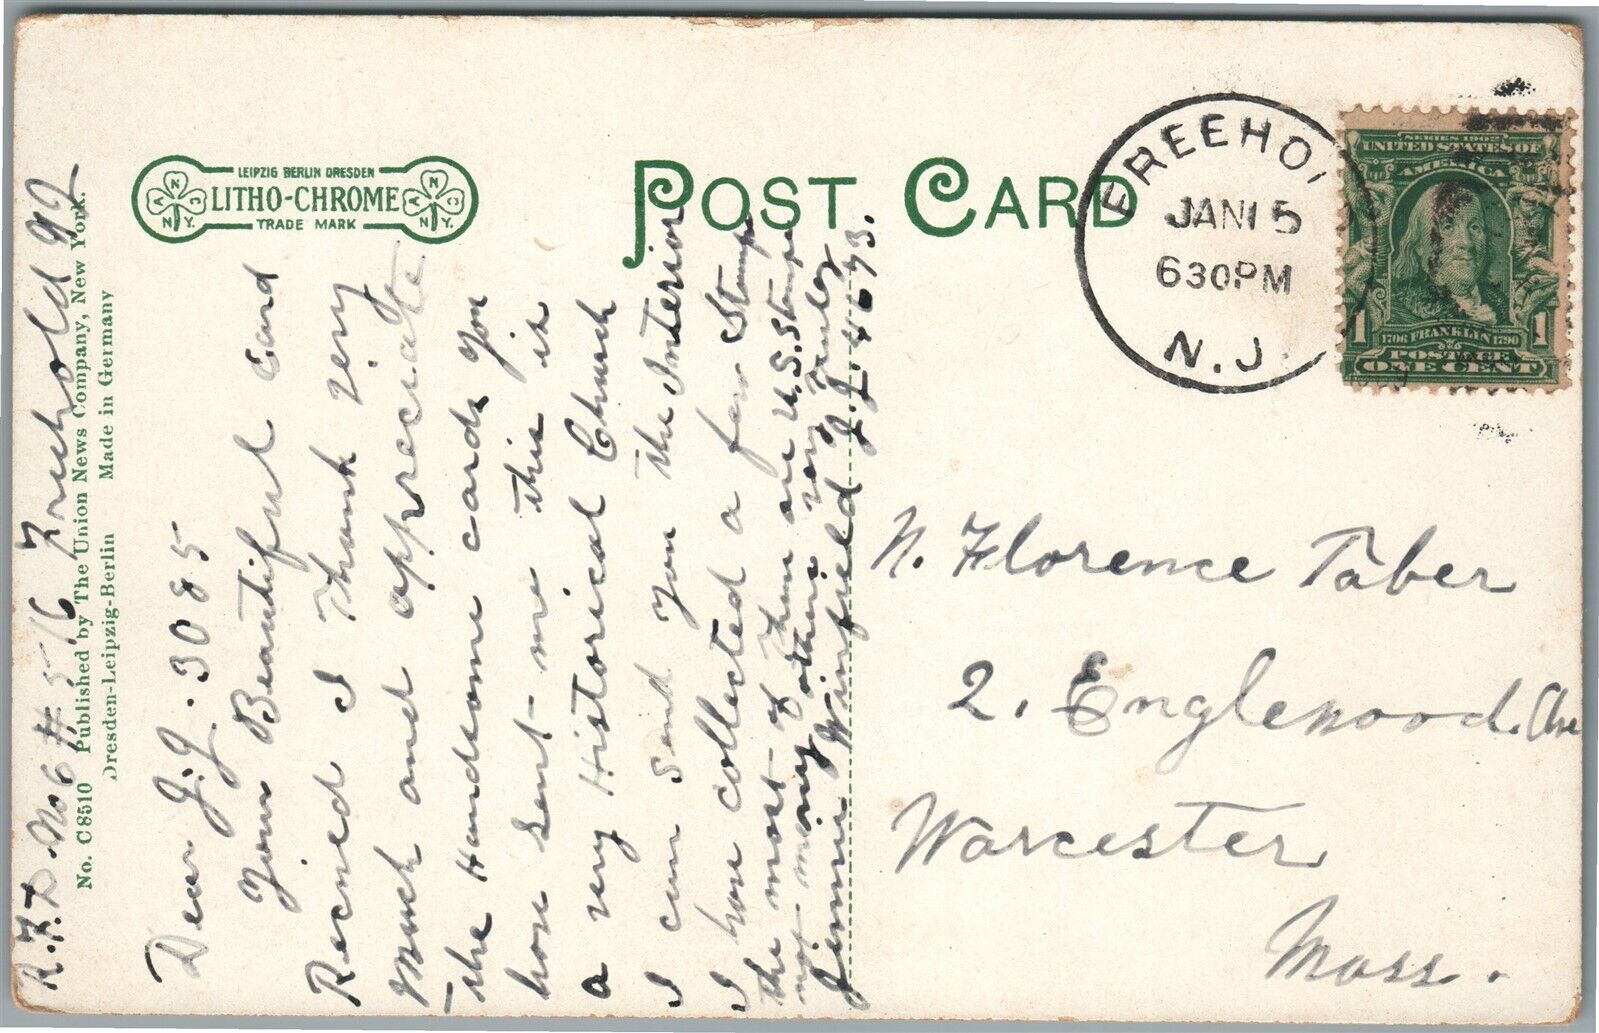 LEIPZIG BERLIN DRESDEN
LITHO-CHROME
TRADE MARK
N.Y.
N.Y.
POST CARD
FREEHOL
JAN 15
630PM
N.J.
SERIES 1902
UNITED STATES OF
AMERICA
1706 FRANKLIN 1790
POSTAGE
1 ONE CENT 1
R.F.D. No 6 # 576 Freehold NJ
No. C8510 Published by The Union News Company, New York.
Dresden-Leipzig-Berlin Made in Germany
Dear J.J. 3085
Your Beautiful Card
Recived I Thank very
Much and appreciate
the Handsome cards you
have sent me this is
a very Historical Church
I can send you the Interior
I have collected a few Stamps
the most of them are U.S. Stamps
not many others very Truley
Jennie Winfield J.J. 4673.
N. Florence Taber
2. Englewood. Ave
Warcester
Mass.